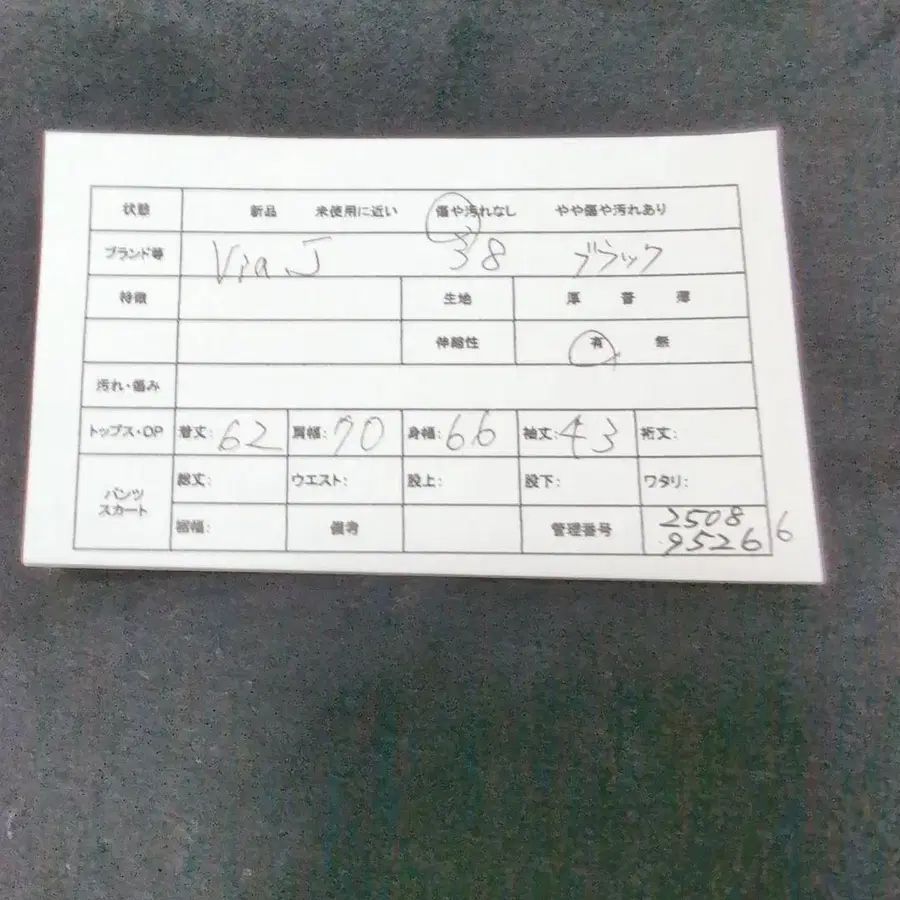 状態 新品 未使用に近い 傷や汚れなし やや傷や汚れあり
ブランド等 Via J 38 ブラック
特徴 生地 厚 普 薄
伸縮性 有 無
汚れ・傷み
トップス・OP 着丈: 62 肩幅: 70 身幅: 66 袖丈: 43 裄丈:
パンツ スカート 総丈: ウエスト: 股上: 股下: ワタリ:
裾幅: 備考 管理番号 2508
95266 6